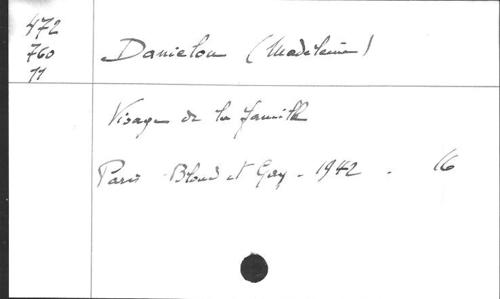 472
760
11
Danielou (Madeleine)
Visage de la famille
Paris - Bloud et Gay - 1942 - 16